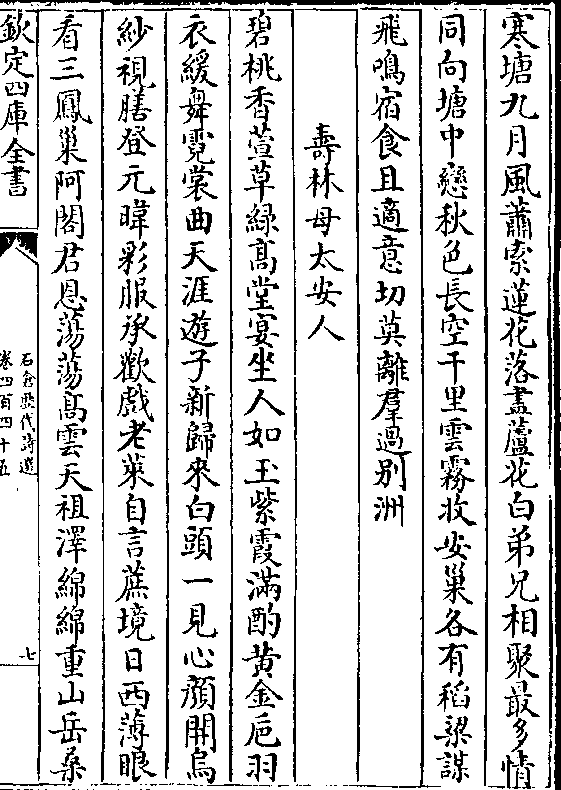 寒塘九月風蕭索蓮花落盡蘆花白弟兄相聚最多情
同向塘中戀秋色長空千里雲霧收安巢各有稻粱謀
飛鳴宿食且適意切莫離羣過别洲
壽林母太安人
碧桃香萱草綠髙堂宴坐人如玉紫霞滿酌黄金巵羽
衣緩舞霓裳曲天涯遊子新歸來白頭一見心顔開烏
紗視膳登元暐彩服承歡戲老萊自言蔗境日西薄眼
看三鳳巢阿閣君恩蕩蕩髙雲天祖澤綿綿重山岳桑
欽定四庫全書
石倉歷代詩選
卷四百四十五
七